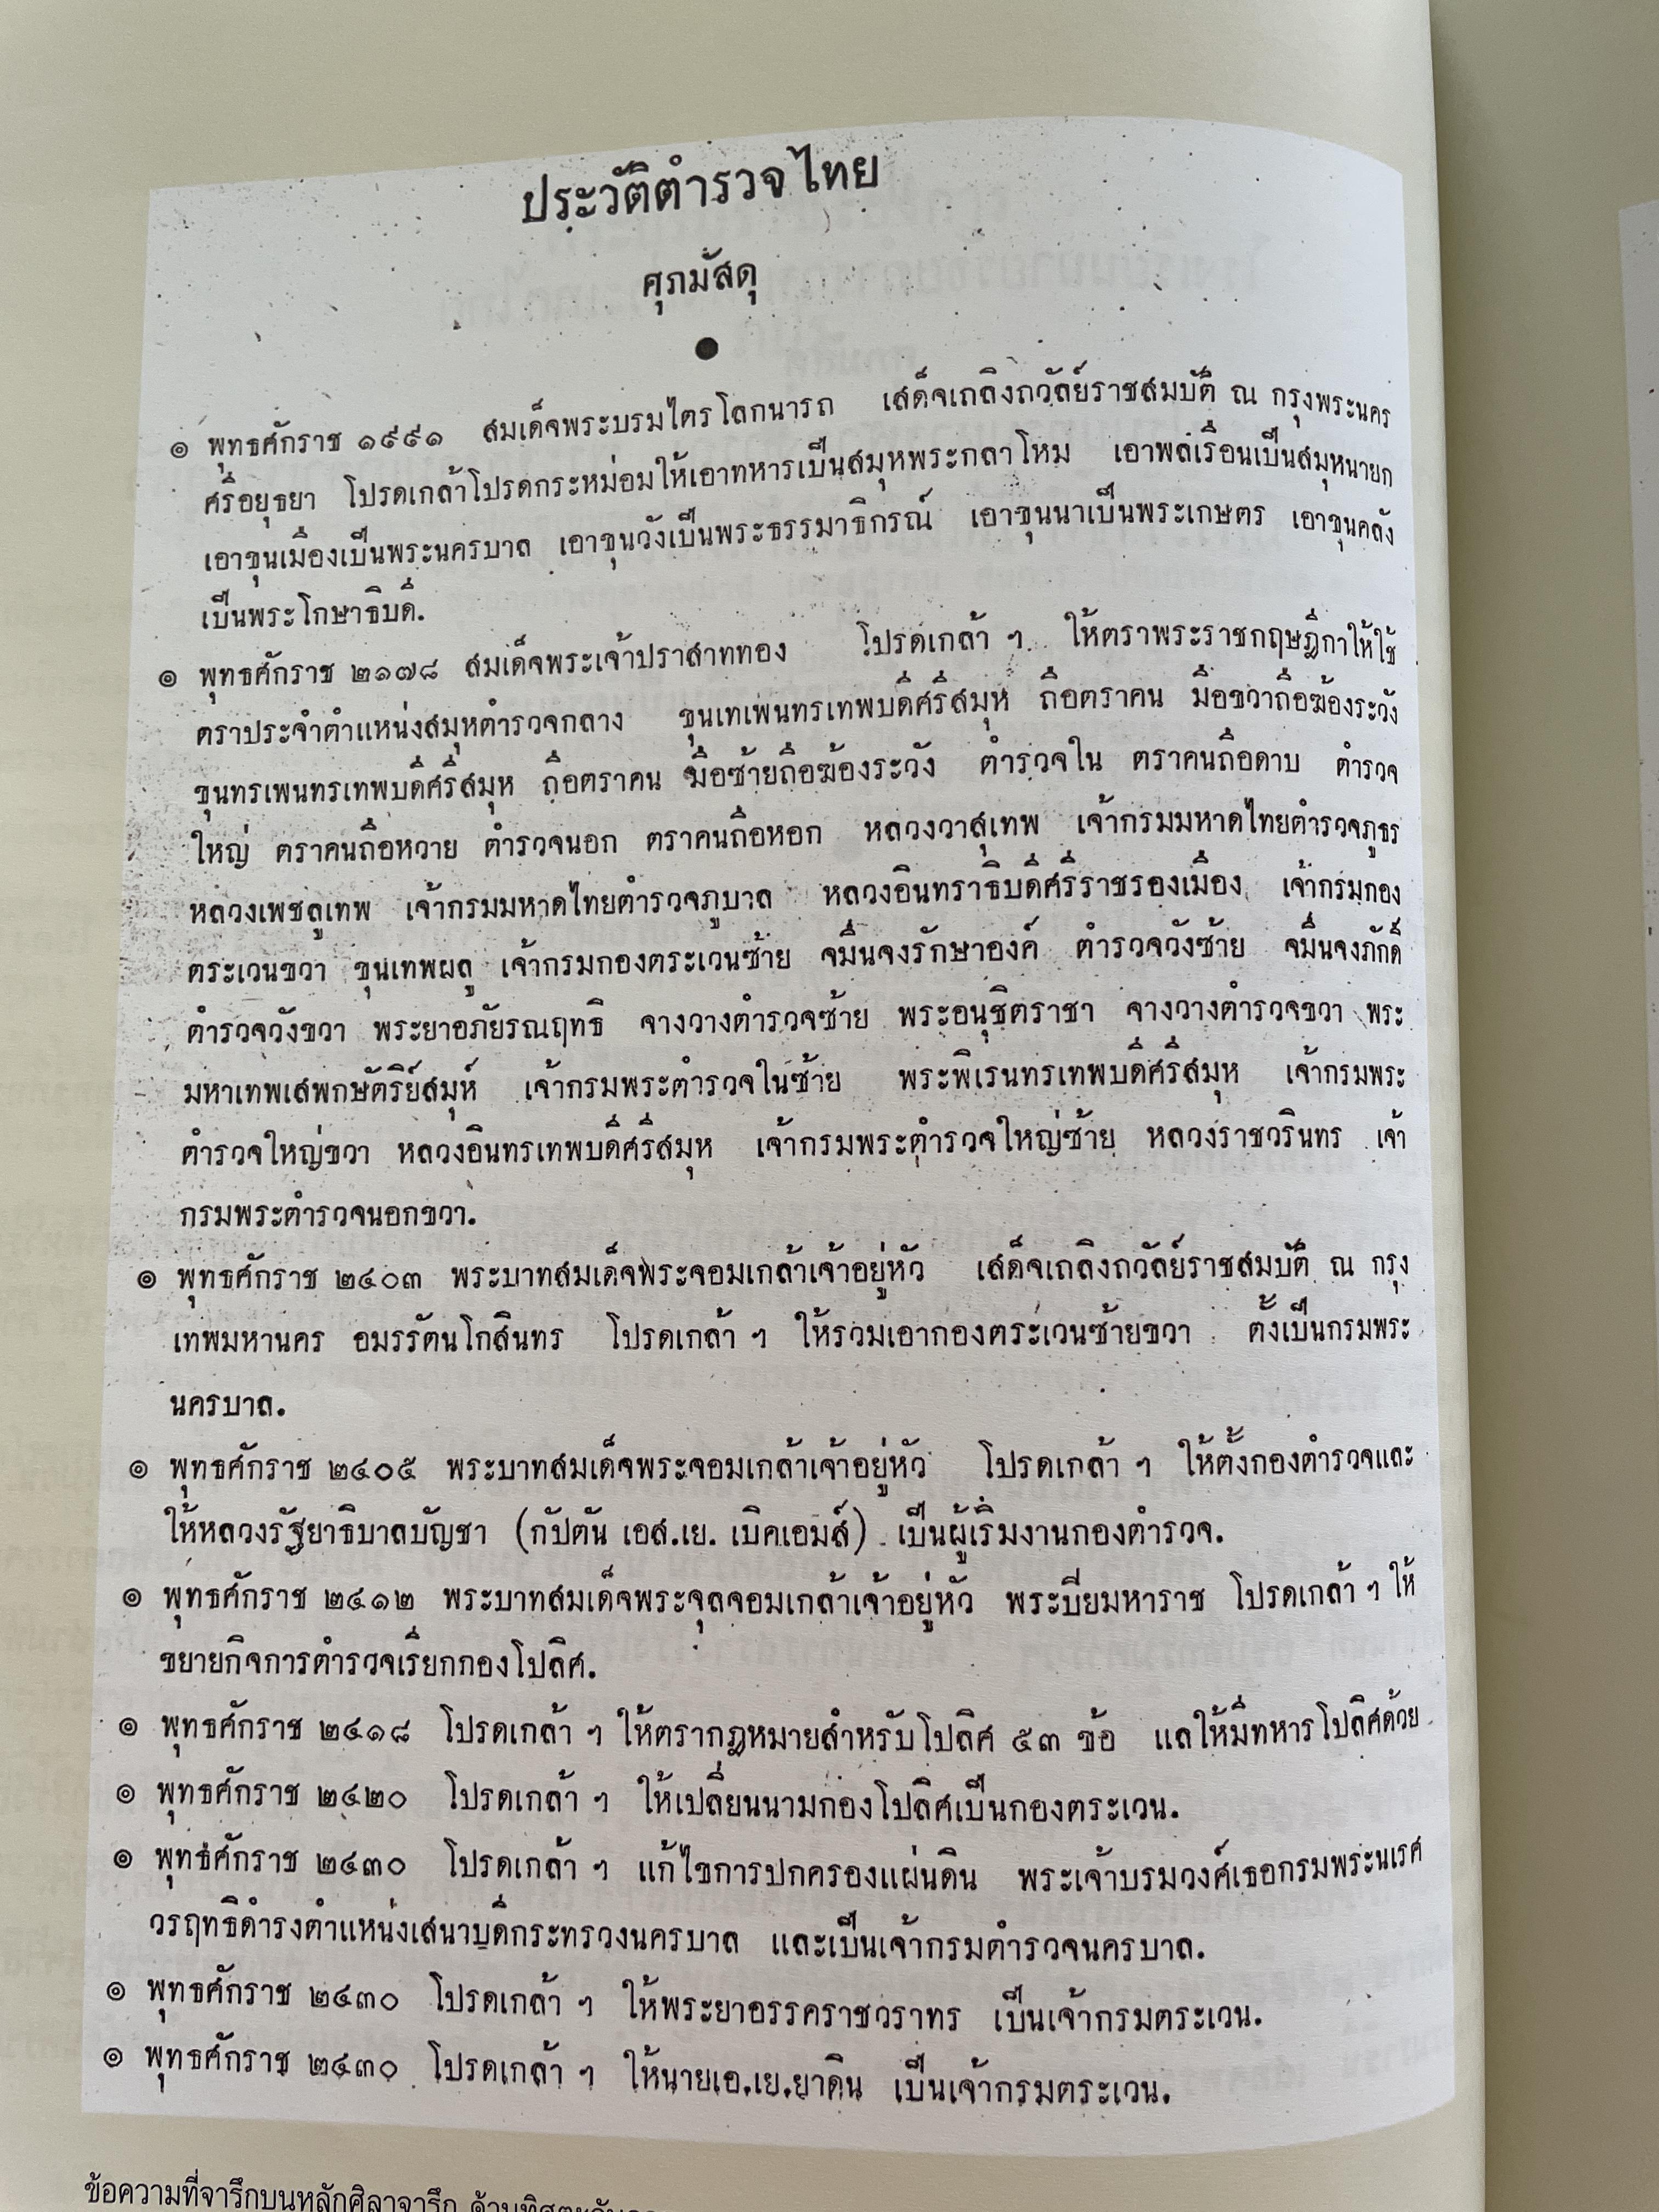 ประวัติตำรวจไทย
ศุภมัสดุ
๏ พุทธศักราช ๑๙๙๑ สมเด็จพระบรมไตรโลกนารถ เสด็จเถลิงถวัลย์ราชสมบัติ ณ กรุงพระนคร
ศรีอยุธยา โปรดเกล้าโปรดกระหม่อมให้เอาทหารเป็นสมุหพระกลาโหม เอาพลเรือนเป็นสมุหนายก
เอาขุนเมืองเป็นพระนครบาล เอาขุนวังเป็นพระธรรมาธิกรณ์ เอาขุนนาเป็นพระเกษตร เอาขุนคลัง
เป็นพระโกษาธิบดี.
๏ พุทธศักราช ๒๑๗๘ สมเด็จพระเจ้าปราสาททอง โปรดเกล้า ฯ ให้ตราพระราชกฤษฎีกาให้ใช้
ตราประจำตำแหน่งสมุหตำรวจกลาง ขุนเทเพนทรเทพบดีศรีสมุห ถือตราคน มือขวาถือฆ้องระวัง
ขุนทรเพนทรเทพบดีศรีสมุห ถือตราคน มือซ้ายถือฆ้องระวัง ตำรวจใน ตราคนถือดาบ ตำรวจ
ใหญ่ ตราคนถือหวาย ตำรวจนอก ตราคนถือหอก หลวงวาสุเทพ เจ้ากรมมหาดไทยตำรวจภูธร
หลวงเพชลูเทพ เจ้ากรมมหาดไทยตำรวจภูบาล หลวงอินทราธิบดีศรีราชรองเมือง เจ้ากรมกอง
ตระเวนขวา ขุนเทพผลู เจ้ากรมกองตระเวนซ้าย จมื่นจงรักษาองค์ ตำรวจวังซ้าย จมื่นจงภักดี
ตำรวจวังขวา พระยาอภัยรณฤทธิ จางวางตำรวจซ้าย พระอนุชิตราชา จางวางตำรวจขวา พระ
มหาเทพเสพกษัตริย์สมุห์ เจ้ากรมพระตำรวจในซ้าย พระพิเรนทรเทพบดีศรีสมุห เจ้ากรมพระ
ตำรวจใหญ่ขวา หลวงอินทรเทพบดีศรีสมุห เจ้ากรมพระตำรวจใหญ่ซ้าย หลวงราชวรินทร เจ้า
กรมพระตำรวจนอกขวา.
๏ พุทธศักราช ๒๔๐๓ พระบาทสมเด็จพระจอมเกล้าเจ้าอยู่หัว เสด็จเถลิงถวัลย์ราชสมบัติ ณ กรุง
เทพมหานคร อมรรัตนโกสินทร โปรดเกล้า ฯ ให้รวมเอากองตระเวนซ้ายขวา ตั้งเป็นกรมพระ
นครบาล.
๏ พุทธศักราช ๒๔๐๕ พระบาทสมเด็จพระจอมเกล้าเจ้าอยู่หัว โปรดเกล้า ฯ ให้ตั้งกองตำรวจและ
ให้หลวงรัฐยาธิบาลบัญชา (กัปตัน เอส.เย. เบิคเอมส์) เป็นผู้เริ่มงานกองตำรวจ.
๏ พุทธศักราช ๒๔๑๒ พระบาทสมเด็จพระจุลจอมเกล้าเจ้าอยู่หัว พระปิยมหาราช โปรดเกล้า ฯ ให้
ขยายกิจการตำรวจเรียกกองโปลิศ.
๏ พุทธศักราช ๒๔๑๘ โปรดเกล้า ฯ ให้ตรากฎหมายสำหรับโปลิศ ๕๓ ข้อ แลให้มีทหารโปลิศด้วย
๏ พุทธศักราช ๒๔๒๐ โปรดเกล้า ฯ ให้เปลี่ยนนามกองโปลิศเป็นกองตระเวน.
๏ พุทธศักราช ๒๔๓๐ โปรดเกล้า ฯ แก้ไขการปกครองแผ่นดิน พระเจ้าบรมวงศ์เธอกรมพระนเรศ
วรฤทธิดำรงตำแหน่งเสนาบดีกระทรวงนครบาล และเป็นเจ้ากรมตำรวจนครบาล.
๏ พุทธศักราช ๒๔๓๐ โปรดเกล้า ฯ ให้พระยาอรรคราชวราทร เป็นเจ้ากรมตระเวน.
๏ พุทธศักราช ๒๔๓๐ โปรดเกล้า ฯ ให้นายเอ.เย.ยาดิน เป็นเจ้ากรมตระเวน.
ข้อความที่จารึกบนหลักศิลาจารึก